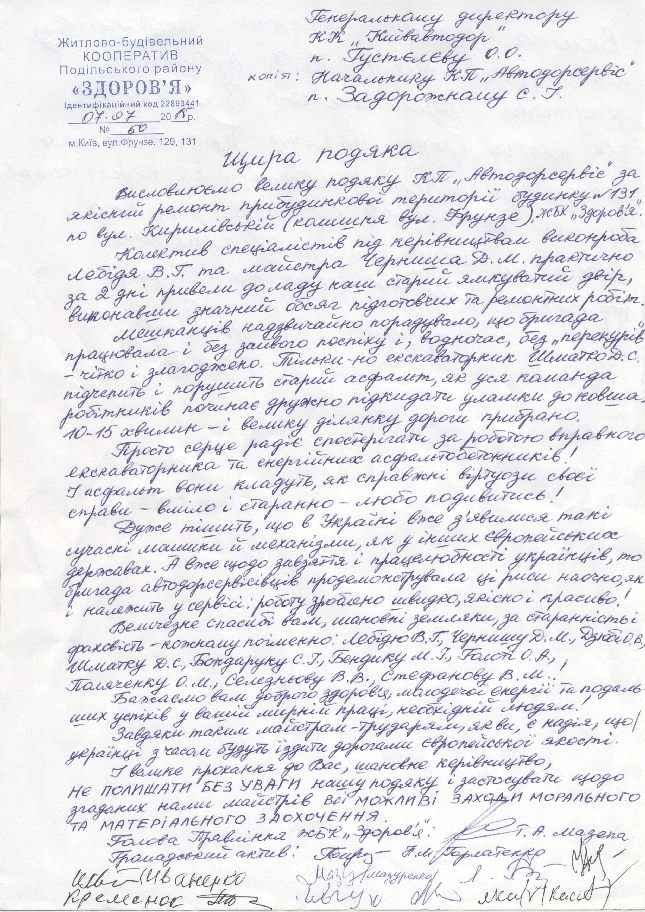 Житлово-будівельний
КООПЕРАТИВ
Подільського району
«ЗДОРОВ'Я»
Ідентифікаційний код 22893441
07.07 2015 р.
№ 60
м.Київ, вул.Фрунзе, 129, 131
Генеральному директору
КК „Київавтодор"
п. Густєлєву О.О.
копія: Начальнику КП „Автодорсервіс"
п. Задорожному С.І.
Щира подяка
Висловлюємо велику подяку КП „Автодорсервіс" за
якісний ремонт прибудинкової території будинку №131
по вул. Кирилівській (колишня вул. Фрунзе), ЖБК „Здоров'я".
Колектив спеціалістів під керівництвам виконроба
Лебідя В.Г. та майстра Черниша Д.М. практично
за 2 дні привели до ладу наш старий ямкуватий двір,
виконавши значний обсяг підготовчих та ремонтних робіт.
Мешканців надзвичайно порадувало, що бригада
працювала і без зайвого поспіху і, водночас, без „перекурів"
– чітко і злагоджено. Тільки-но екскаваторник Шматко Д.С.
підчепить і порушить старий асфальт, як уся команда
робітників починає дружно підкидати уламки до ковша.
10-15 хвилин – і велику ділянку дороги прибрано.
Просто серце радіє спостерігати за роботою вправного
екскаваторника та енергійних асфальтобетонників!
І асфальт вони кладуть, як справжні віртуози своєї
справи – вміло і старанно – любо подивитись!
Дуже тішить, що в Україні вже з'явилися такі
сучасні машини й механізми, як у інших європейських
державах. А вже щодо завзяття і працелюбності українців, то
бригада автодорсервісівців продемонструвала ці риси наочно, як
і належить у сервісі: роботу зроблено швидко, якісно і красиво!
Величезне спасибі вам, шановні земляки, за старанність і
фаховість – кожному поіменно: Лебідю В.Г., Чернишу Д.М., О.В.,
Шматку Д.С., Бондаруку С.І., Бендику М.І., О.А.,
Поляченку О.М., Селезньову В.В., Стефанову В.М.
Бажаємо вам доброго здоров'я, молодечої енергії та подаль-
ших успіхів у вашій мирній праці, необхідній людям!
Завдяки таким майстрам-трударям, як ви, є надія, що
українці з часом будуть їздити дорогами європейської якості.
І велике прохання до Вас, шановне керівництво,
НЕ ПОЛИШАТИ БЕЗ УВАГИ нашу подяку і застосувати щодо
згаданих нами майстрів ВСІ МОЖЛИВІ ЗАХОДИ МОРАЛЬНОГО
ТА МАТЕРІАЛЬНОГО ЗАОХОЧЕННЯ.
Голова Правління ЖБК „Здоров'я": Т.А. Мазепа
Громадський актив:
Іваненко Мазуренко
Кременюк